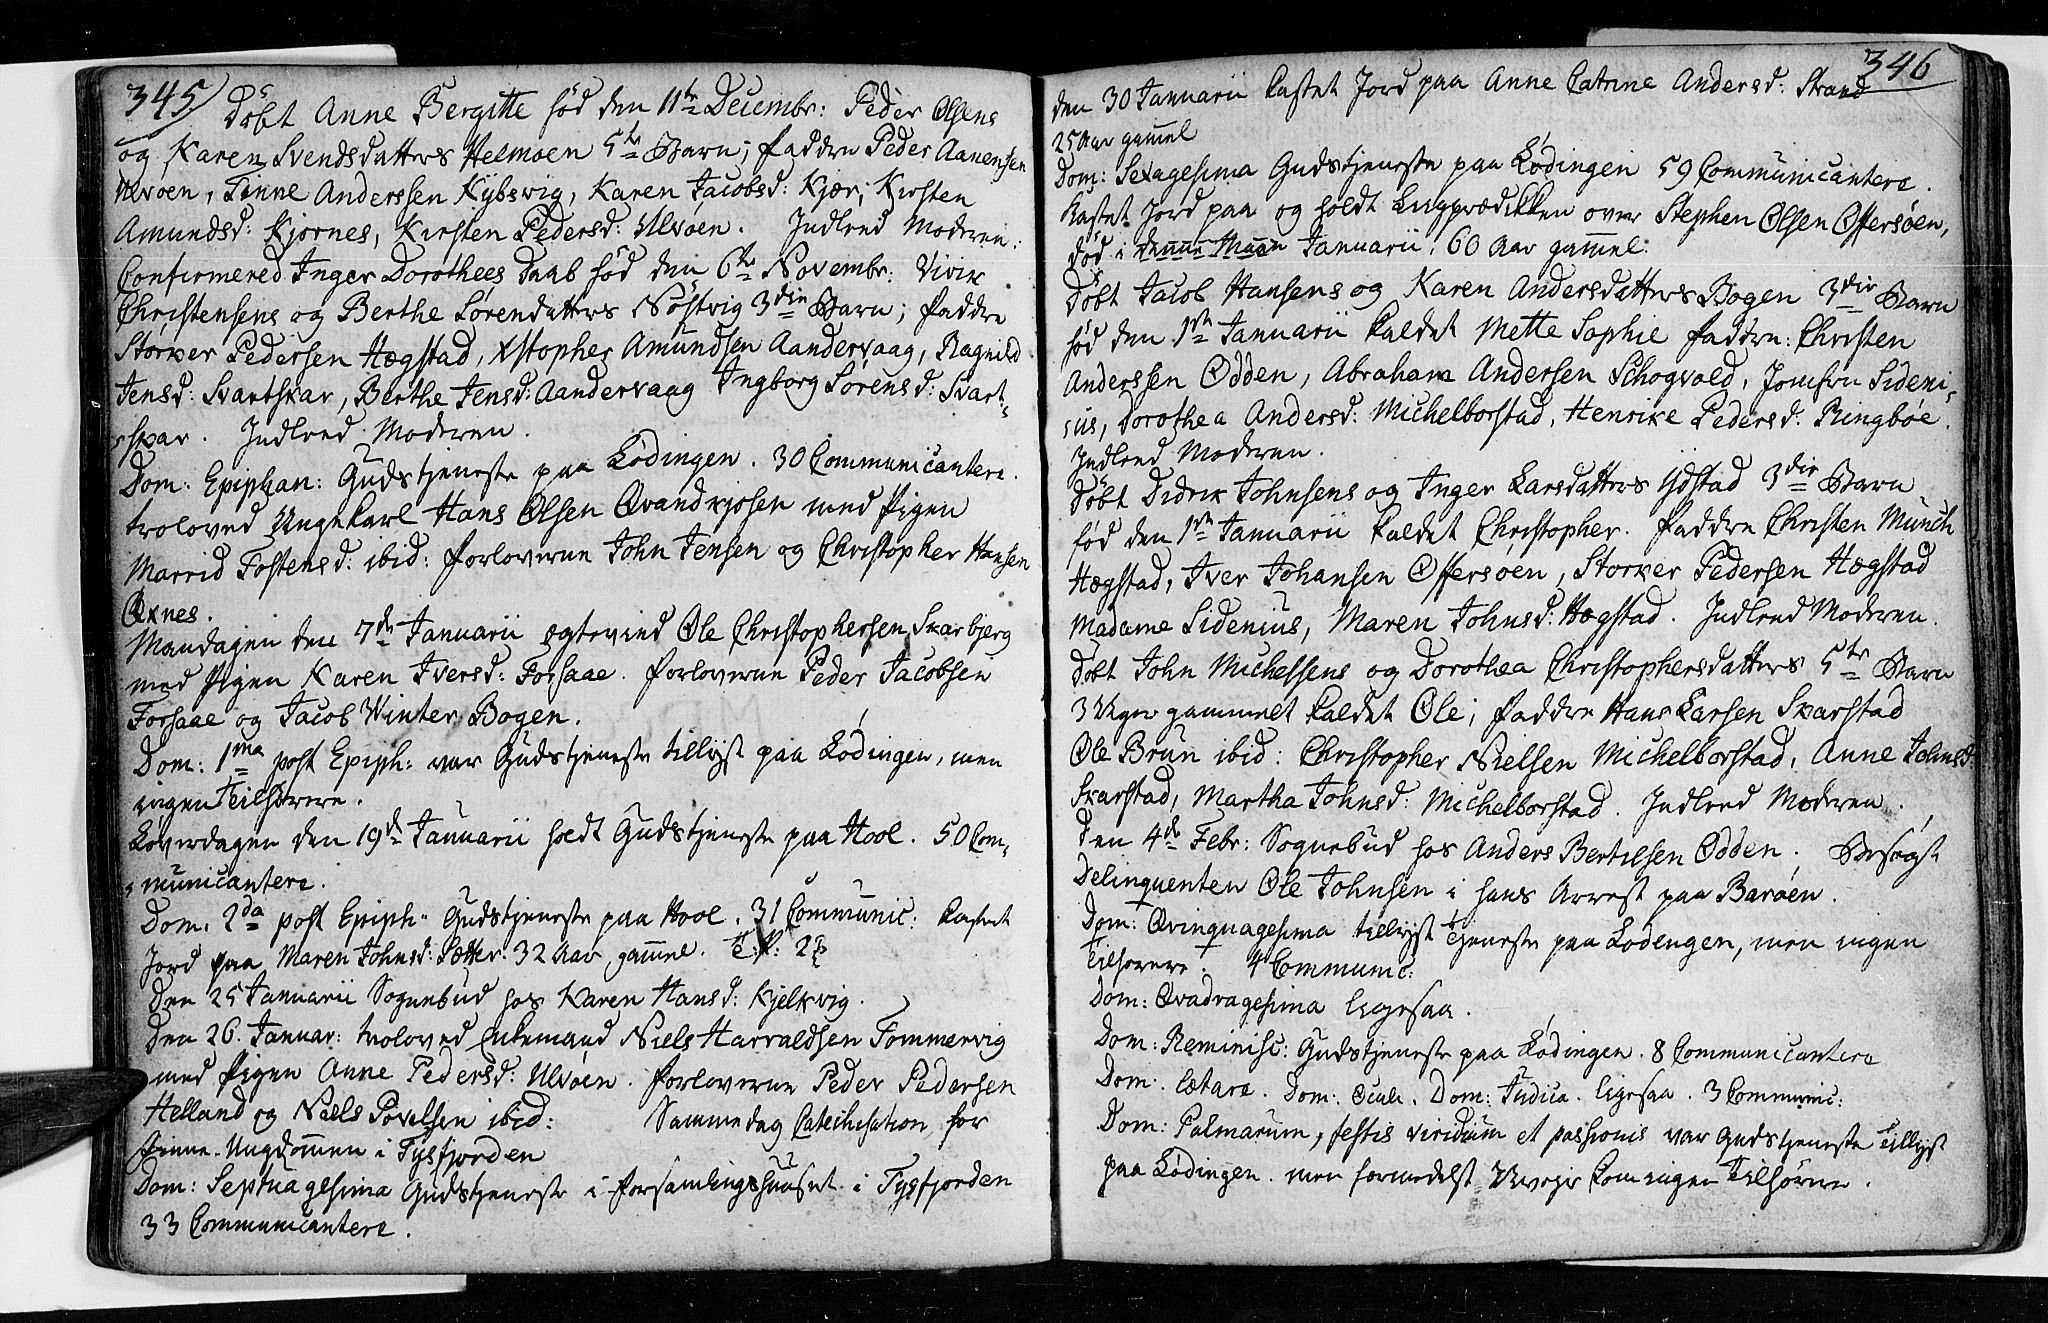 345
Döbt Anne Bergitte fód den 11te Decembr: Peder Olsens
og Karen Svendsdatters Helmoen 5te Barn; faddre Peder Aanensen
Ulvöen, Finne Anderssen Kybsvig, Karen Jacobsd: Kjær, Kirsten
Amundsd: Kjörnes, Kirsten Pedersd: Ulvöen. Indleed Moderen.
Confirmered Inger Dorothees Daab fód den 6te Novembr: Vivik
Christensens og Berthe Sörendatters Nöstvig 3die Barn; faddre
Storker Pedersen Hægstad, Xstopher Amundsen Aandervaag, Ragnild
Jensd: Svartskar, Berthe Jensd: Aandervaag Ingborg Sörensd: Svart-
skar. Indleed Moderen.
Dom: Epiphan: Gudstjeneste paa Lödingen. 30 Communicantere.
troloved Ungekarl Hans Olsen Qvandkjosen med Pigen
Marrid Tostensd: ibid: Forloverne John Jensen og Christopher Hansen
Oxnes.
Mandagen den 7de Januarii ægtevied Ole Christophersen Skarbjerg
med Pigen Karen Iversd: Forsaae. Forloverne Peder Jacobsen
Forsaae og Jacob Winter Bogen.
Dom: 1ma post Epiph: var Gudstjeneste tillyst paa Lödingen, men
ingen Tilhörere.
Löverdagen den 19de Januarii holdt Gudstjeneste paa Hool. 50 Com-
municantere.
Dom: 2da post Epiph: Gudstjeneste paa Hool. 31 Communic: Kastet
Jord paa Maren Johnsd: Sætter. 32 Aar gammel.
Den 25 Januarii Sognebud hos Karen Hansd: Kjelkvig.
Den 26. Januar: troloved Enkemand Niels Harraldsen Tommervig
med Pigen Anne Pedersd: Ulvöen. Forloverne Peder Pedersen
Helland og Niels Povelsen ibid: Samme dag Catechisation for
Finne-Ungdommen i Tysfjorden
Dom: Septuagesima Gudstjeneste i Forsamlingshuuset i Tysfjorden
33 Communicantere.
346
den 30 Januarii Kastet Jord paa Anne Catrine Andersd: Strand
25 Aar gammel
Dom: Sexagesima Gudstjeneste paa Lödingen 59 Communicantere.
Kastet Jord paa og holdt Liigprædikken over Stephen Olsen Offersöen,
död i denne Maan Januarii, 60 Aar gammel.
Döbt Jacob Hansens og Karen Andersdatters Bogen 3die Barn
fód den 1ste Januarii kaldet Mette Sophie faddre: Christen
Anderssen Odden, Abraham Andersen Schogvold, Jomfru Sideni-
us, Dorothea Andersd: Michelborstad, Henrike Pedersd: Ringböe.
Indleed Moderen.
Döbt Didrik Johnsens og Inger Larsdatters Ydstad 3die Barn
fód den 1ste Januarii kaldet Christopher. Faddre Christen Munch
Hægstad, Iver Johansen Offersöen, Storker Pedersen Hægstad
Madame Sidenius, Maren Johnsd: Hægstad. Indleed Moderen.
Döbt John Michelsens og Dorothea Christophersdatters 5te Barn
3 Uger gammelt kaldet Ole; faddre Hans Larsen Skarstad
Ole Brun ibid: Christopher Nielsen Michelborstad, Anne Johnsd:
Skarstad, Martha Johnsd: Michelborstad. Indleed Moderen.
Den 4de Febr: Sognebud hos Anders Bertilsen Odden. Besögt
Delinqventen Ole Johnsen i hans Arrest paa Baröen.
Dom: Qvinquagesima tillyst Tjeneste paa Lodingen, men ingen
Tilhörere. 4 Communic:
Dom: Qvadragesima ligesaa.
Dom: Reminisc: Gudstjeneste paa Lödingen. 8 Communicantere
Dom: Lætare. Dom: Oculi. Dom: Judica. ligesaa. 3 Communic:
Dom: Palmarum, festis viridium et passionis var Gudstjeneste Tillyst
paa Lödingen. men formedelst Uveyr kom ingen Tilhörere.